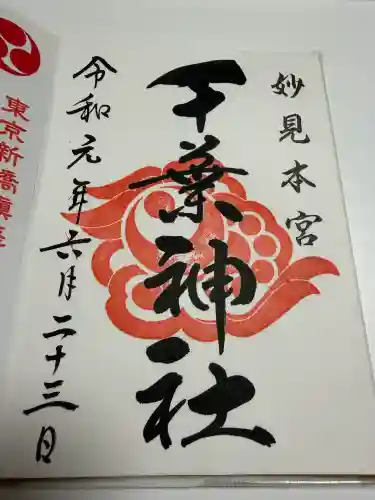 妙見本宮
千葉神社
令和元年六月二十三日
東京新橋鎮座